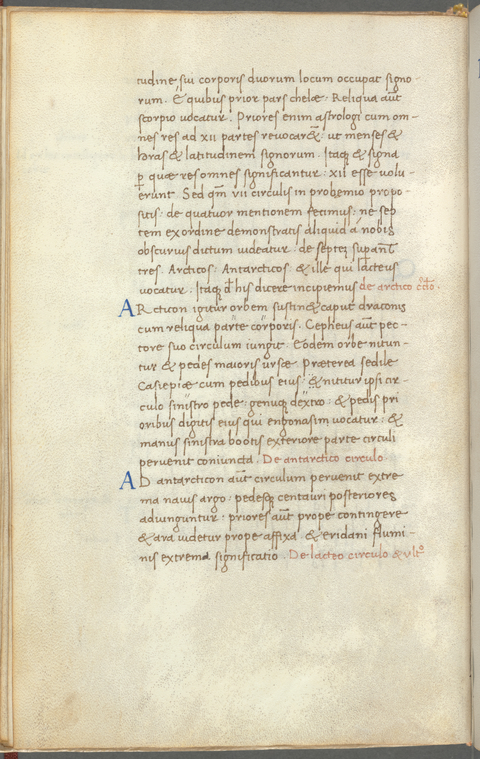 tudine sui corporis duorum locum occupat signo-
rum. E quibus prior pars chelæ. Reliqua aūt
scorpio vocatur. Priores enim astrologi cum om-
nes res ad xii partes revocarēt: ut menses &
horas & latitudinem signorum. Itaq; & signa
ꝑ quæ res omnes significantur: xii esse volu-
erunt. Sed qm̄ vii circulis in prohemio propo-
sitis: de quatuor mentionem fecimus: ne sep
tem ex ordine demonstratis aliquid a nobis
obscurius dictum videatur: de septēz supant̄
tres. Arcticos. Antarcticos. & ille qui lacteus
vocatur. Itaq; d̄ his dicere incipiemus de arctico c̄c̄lo.
ARcticon igitur orbem sustinet caput draconis
cum reliqua parte corporis. Cepheus aūt pec-
tore suo circulum iungit. Eodem orbe nitun-
tur & pedes maioris ursæ. Præterea sedile
Casiepiæ cum pedibus eius: & nititur ipsi cir-
culo sinistro pede: genuq; dextro: & pedis pri
oribus digitis eius qui engonasim vocatur: &
manus sinistra bootis exteriore parte circuli
pervenit coniuncta. De antarctico circulo.
AD antarcticon aūt circulum pervenit extre
ma navis argo: pedesq; centauri posteriores
adiunguntur: priores aūt prope contingere
& ara videtur prope affixa: & eridani flumi-
nis extrema significatio. De lacteo circulo & vltº